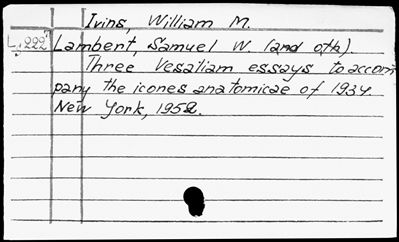 Ivins, William M.
L.222 Lambert, Samuel W. (and oth).
Three Vesaliam essays to accom
pany the icones anatomicae of 1934.
New York, 1952.